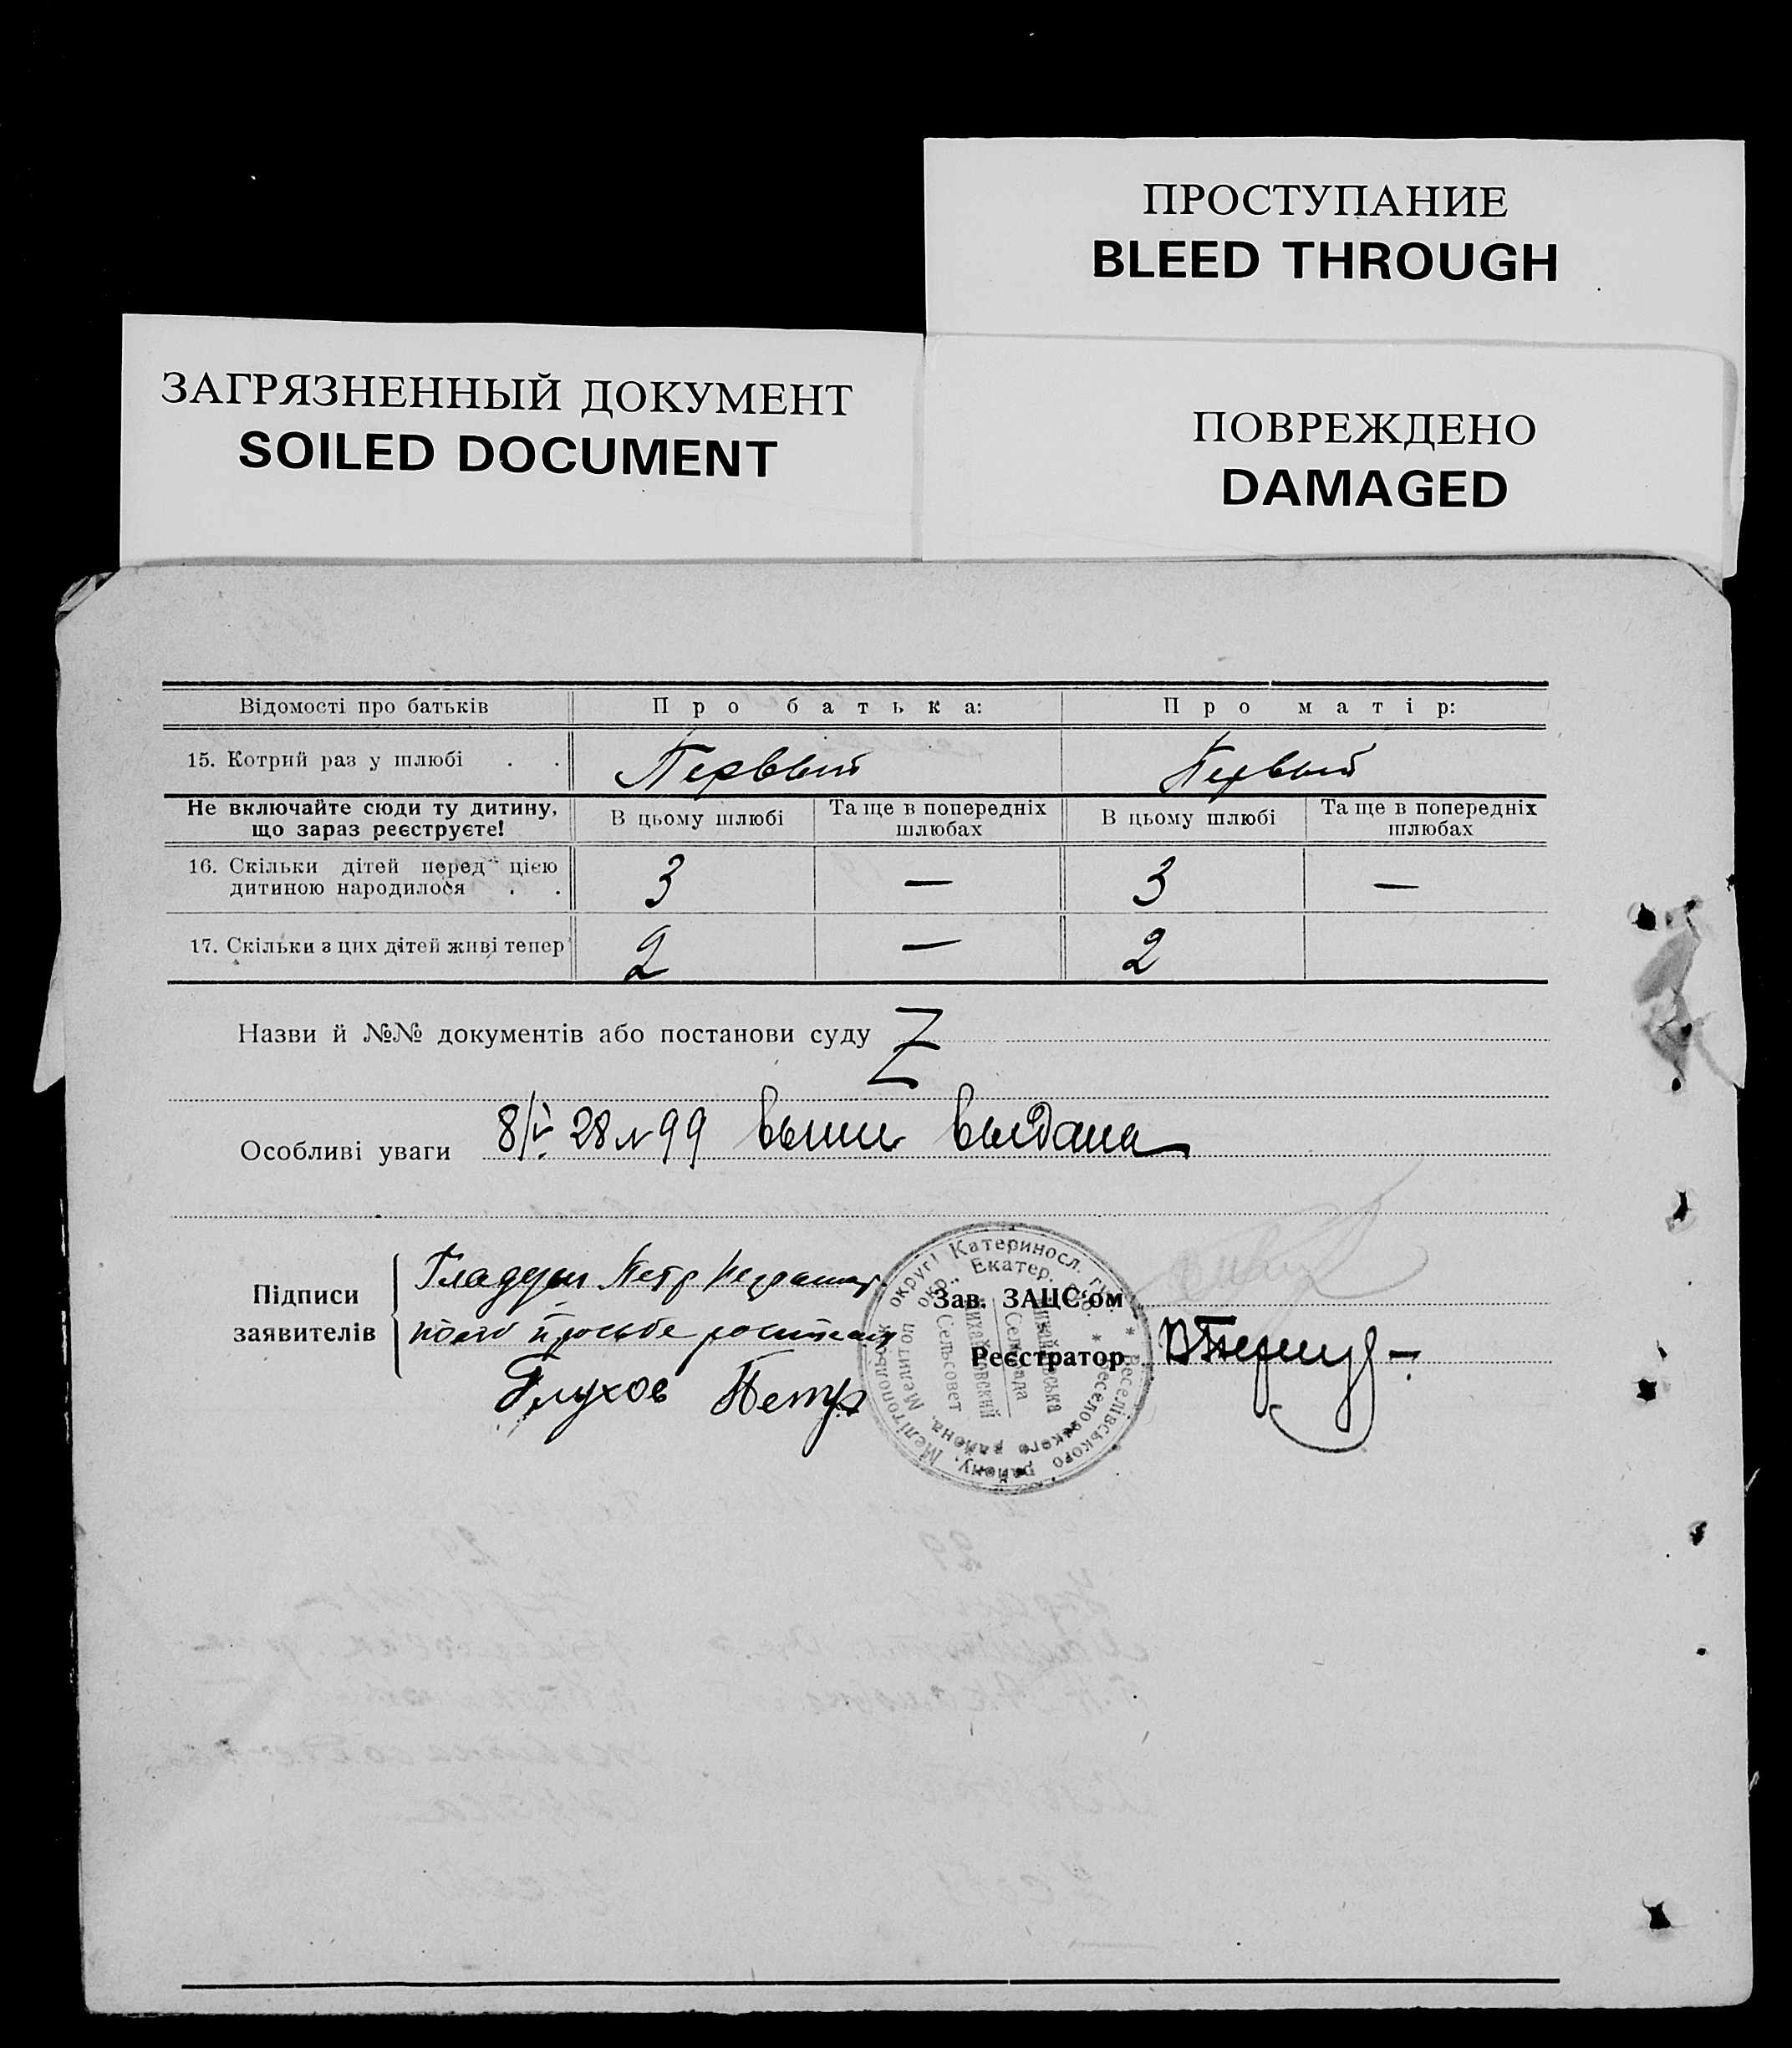 ПРОСТУПАНИЕ
BLEED THROUGH
ЗАГРЯЗНЕННЫЙ ДОКУМЕНТ
SOILED DOCUMENT
ПОВРЕЖДЕНО
DAMAGED
Відомості про батьків Про батька: Про матір:
15. Котрий раз у шлюбі . . Первый Первый
Не включайте сюди ту дитину, що зараз реєструєте! В цьому шлюбі Та ще в попередніх шлюбах В цьому шлюбі Та ще в попередніх шлюбах
16. Скільки дітей перед цією дитиною народилося . . 3 — 3 —
17. Скільки з цих дітей живі тепер 2 — 2
Назви й №№ документів або постанови суду Z
Особливі уваги 8/V 28 № 99 выдана
Підписи заявителів
Петр
просьбе
Глухов Петр
Зав. ЗАЦС'ом
Реєстратор
Веселівського району, Мелітопольськ округі Катериносл. губ.
Михайлівська Сельрада
Михайловский Сельсовет